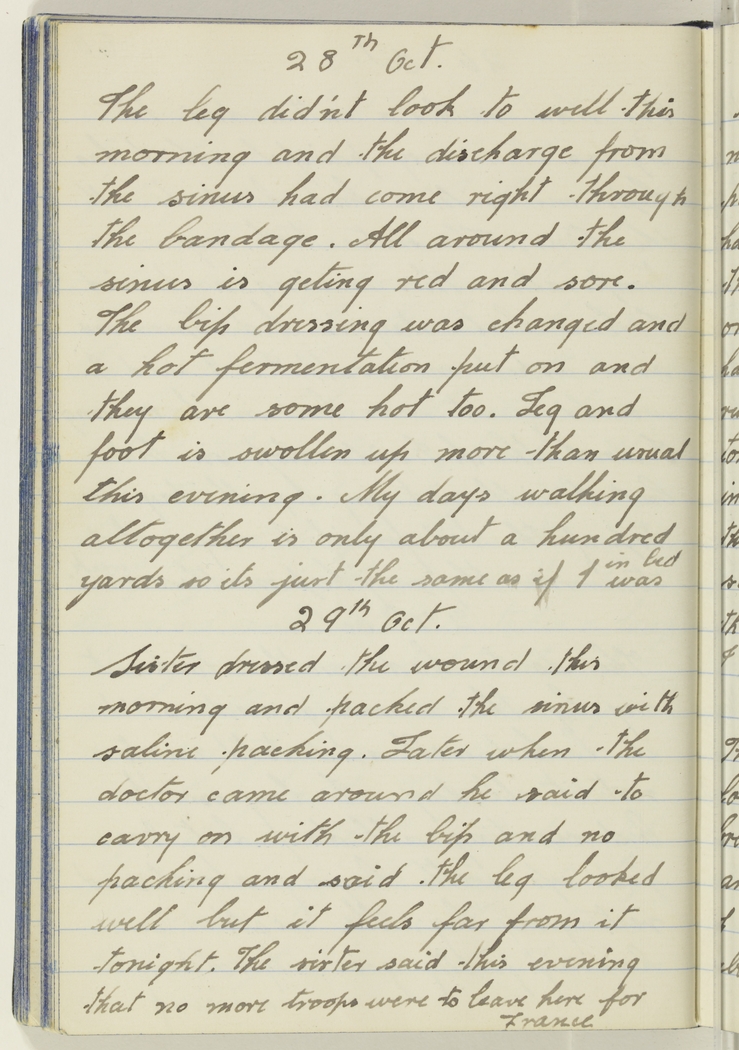 28th Oct.
The leg did'nt look to well this
morning and the discharge from
the sinus had come right through
the bandage. All around the
sinus is geting red and sore.
The bip dressing was changed and
a hot fermentation put on and
they are some hot too. Leg and
foot is swollen up more than usual
this evening. My days walking
altogether is only about a hundred
yards so its just the same as if I was in bed
29th Oct.
Sister dressed the wound this
morning and packed the sinus with
saline packing. Later when the
doctor came around he said to
carry on with the bip and no
packing and said the leg looked
well but it feels far from it
tonight. The sister said this evening
that no more troops were to leave here for
France